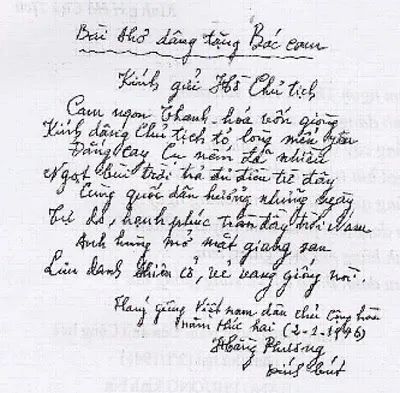 Bài thơ dâng tặng Bác cam
Kính gửi Hồ Chủ tịch
Cam ngon Thanh hóa vốn giòng
Kính dâng Chủ tịch tỏ lòng mến yêu
Đắng cay Cụ nếm đã nhiều
Ngọt bùi trời trả đủ điều từ đây
Cùng quốc dân hưởng những ngày
Tự do, hạnh phúc tràn đầy trời Nam
Anh hùng mở mặt giang san
Lưu danh thiên cổ, vẻ vang giống nòi.
Tháng giêng Việt nam dân chủ Cộng hòa
năm thứ hai (2-1-1946)
Hằng Phương
kính bút